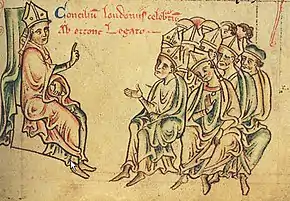 Concilium londoniis celebratum
Ab ottone Legato